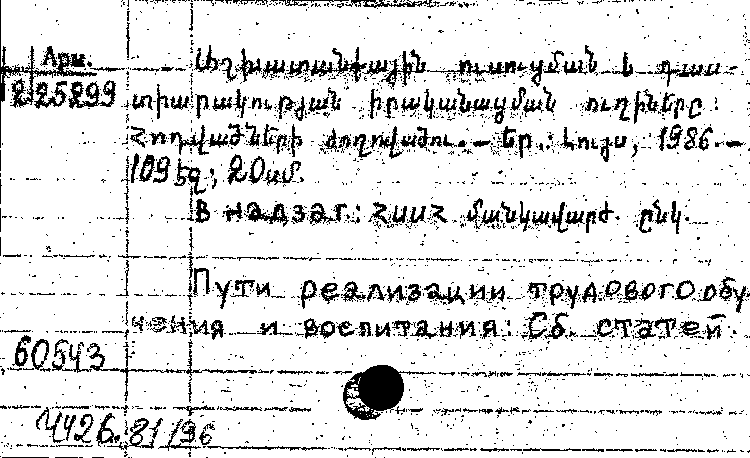 Арм.
Աշխատանքային ուսուցման և դաս-
2 25299 տիարակության իրականացման ուղիները:
Հոդվածների ժողովածու. – Եր.: Լույս, 1986. –
109 էջ; 20 սմ.
В надзаг.: ՀՍՍՀ մանկավարժ. ընկ.
Пути реализации трудового обу
чения и воспитания: Сб. статей.
60543
Ч426.81/96